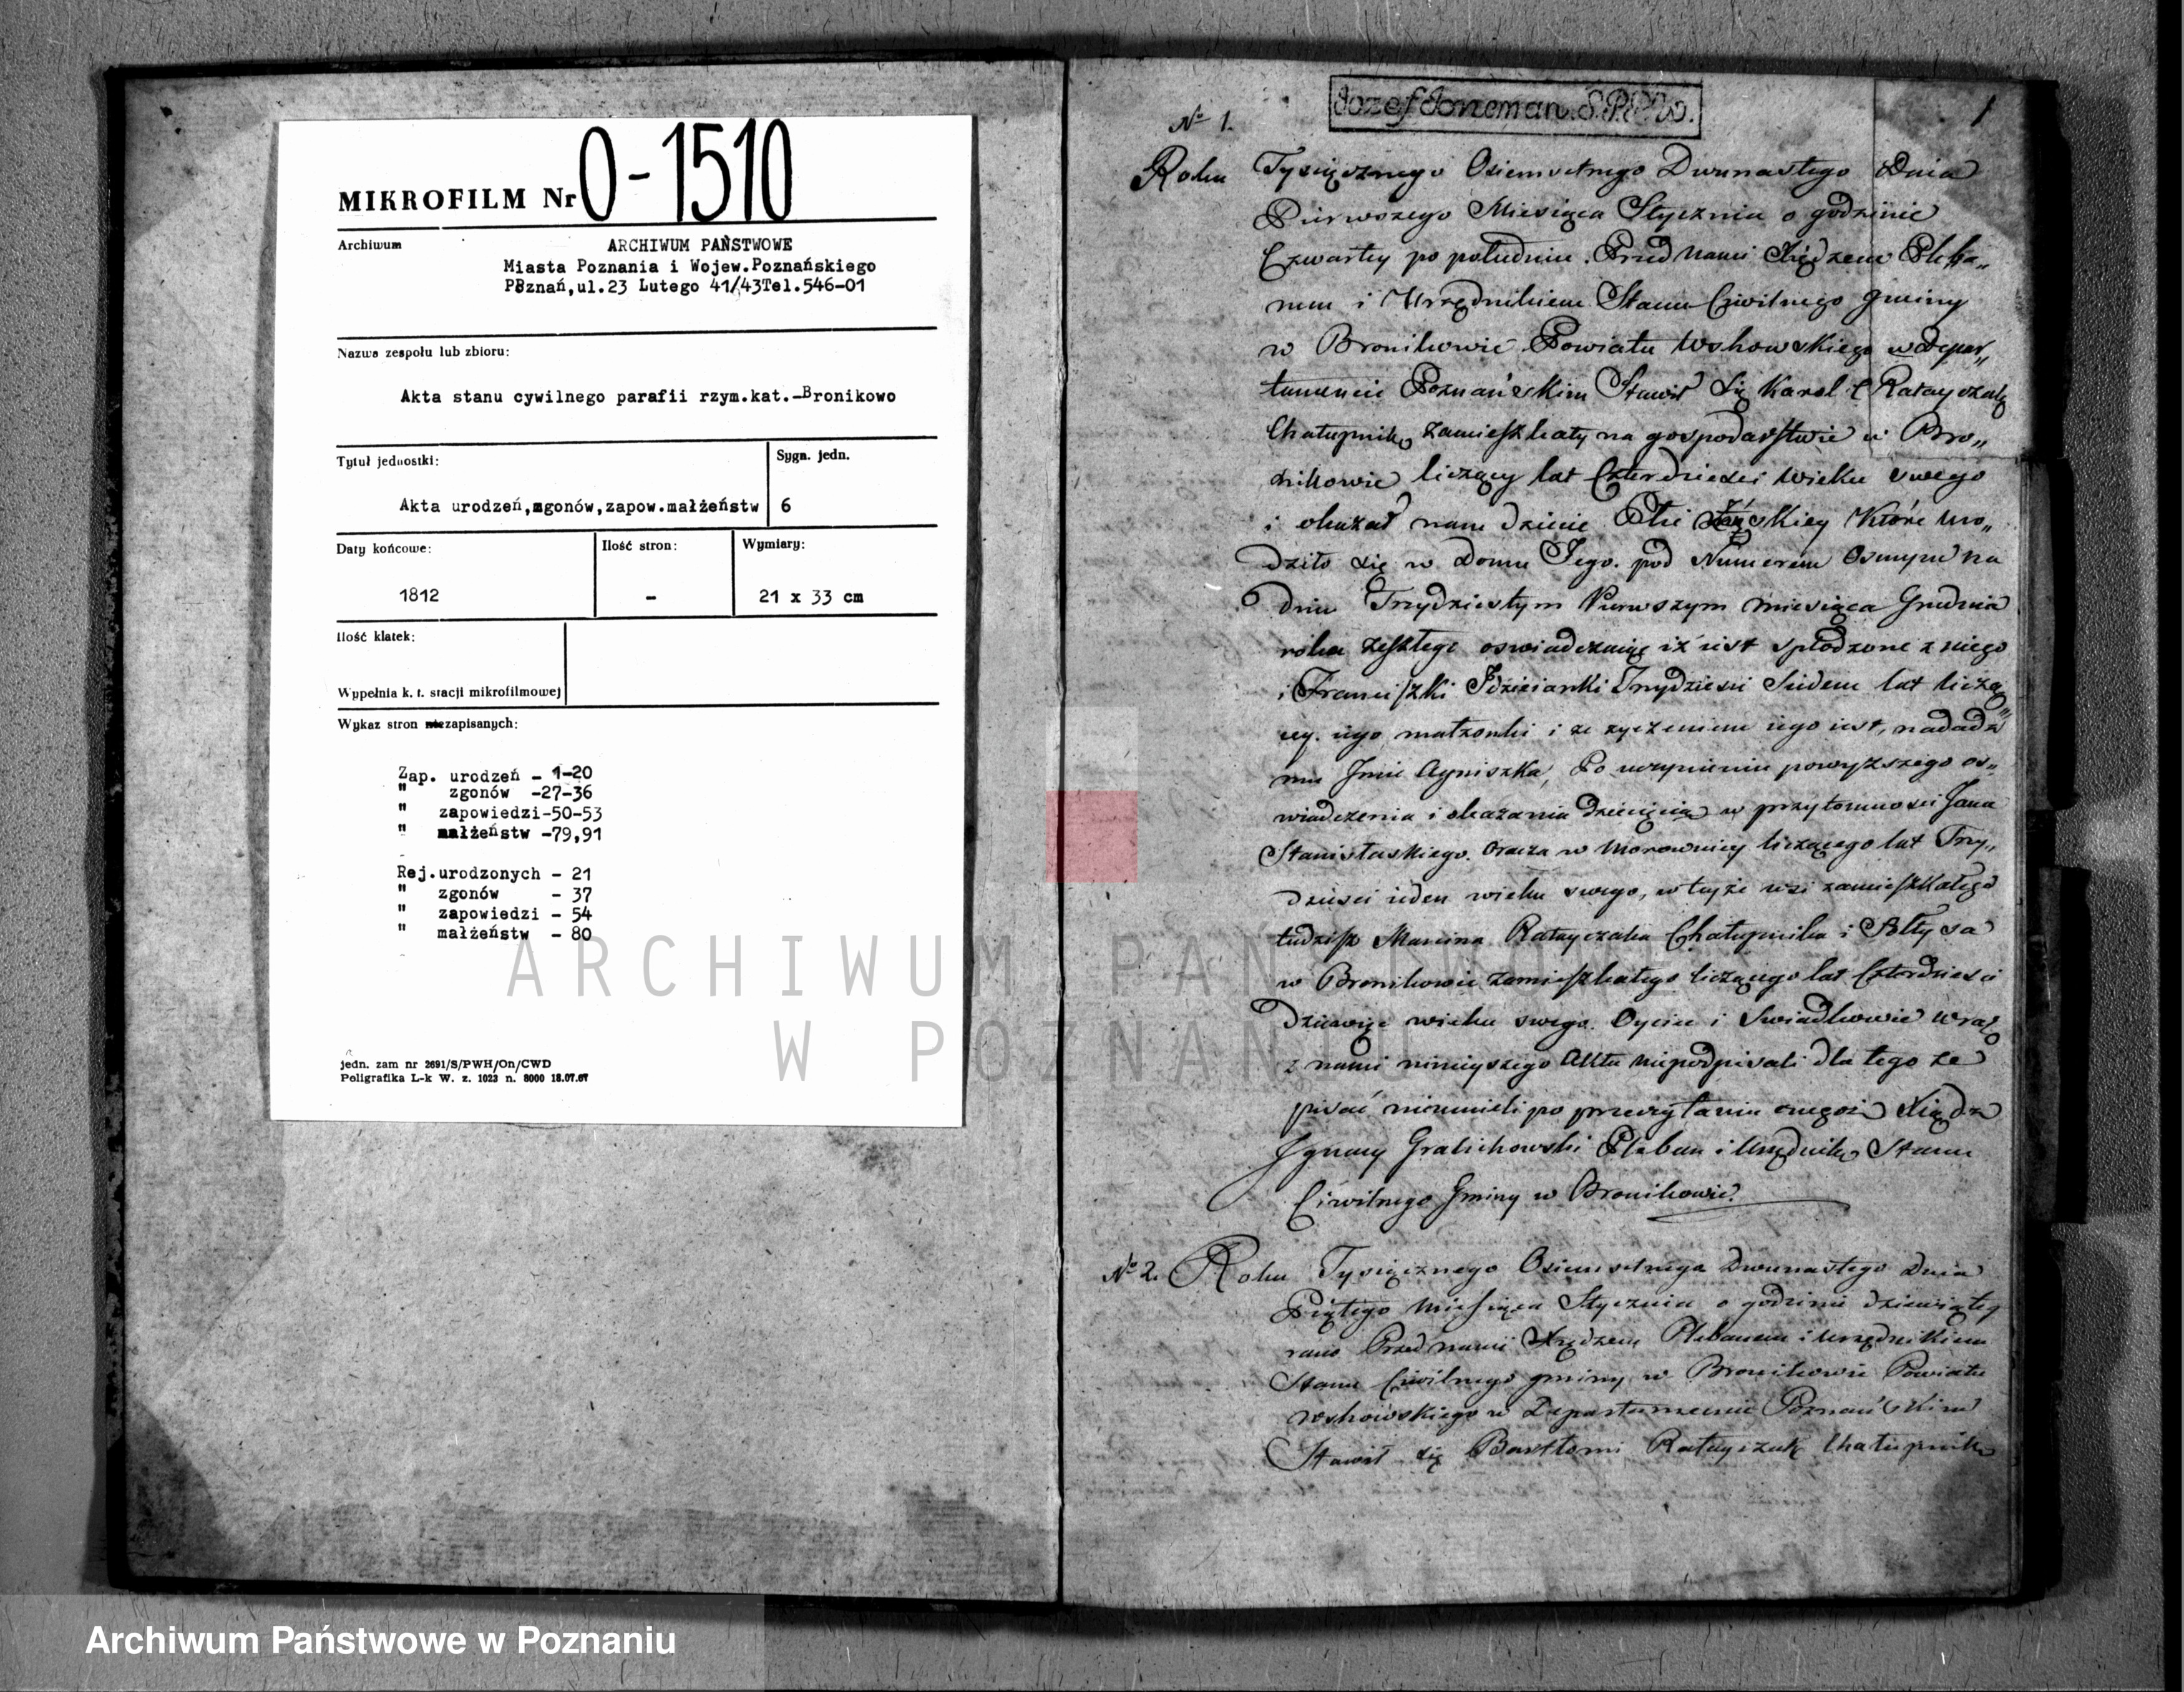 MIKROFILM Nr O-1510
Archiwum
ARCHIWUM PAŃSTWOWE
Miasta Poznania i Wojew.Poznańskiego
PBznań,ul.23 Lutego 41/43Tel.546-01
Nazwa zespołu lub zbioru:
Akta stanu cywilnego parafii rzym.kat.-Bronikowo
Tytuł jednostki:
Sygn. jedn.
Akta urodzeń,zgonów,zapow.małżeństw
6
Daty końcowe:
Ilość stron:
Wymiary:
1812
-
21 x 33 cm
Ilość klatek:
Wypełnia k. t. stacji mikrofilmowej
Wykaz stron zapisanych:
Zap. urodzeń - 1-20
" zgonów -27-36
" zapowiedzi-50-53
" małżeństw -79,91
Rej.urodzonych - 21
" zgonów - 37
" zapowiedzi - 54
" małżeństw - 80
jedn. zam nr 2691/S/PWH/On/CWD
Poligrafika L-k W. z. 1023 n. 8000 18.07.67
1
No 1.
Roku Tysiącznego Osiemsetnego Dwunastego Dnia
Pierwszego Miesiąca Stycznia o godzinie
Czwartey po południu. Przed nami Xiędzem Pleba„
nem i Urzędnikiem Stanu Cywilnego gminy
w Bronikowie Powiatu Wshowskiego w Depar„
tamencie Poznańskim Stawił się Karol Ratayczak
Chałupnik zamieszkały na gospodarstwie w Bro„
nikowie liczący lat Czterdzieści wieku swego
i okazał nam dziecie Płci Żęskiey Które uro„
dziło się w domu Jego. pod Numerem Osmym na
dniu Trzydziestym Pierwszym miesiąca Grudnia
roku zeszłego oswiadczaiąc iż iest spłodzone z niego
i Franciszki Trzydziesci Siedem lat liczą„
cey. iego małżonki i że życzeniem iego iest, nadadź
mu Jmie Agniszka, Po uczynieniu powyższego os„
wiadczenia i okazania dziecięcia w przytomnosci Jana
w Morownicy liczącego lat Trzy„
dziesci ieden wieku swego, w teyże wsi zamieszkałego
tudzisz Marcina Ratayczaka Chałupnika i Sołtysa
w Bronikowie zamieszkałego liczącego lat Czterdziesci
Dziewięć wieku swego. Oyciec i Swiadkowie wraz
z nami ninieyszego Aktu niepodpisali dla tego że
pisać nieumieli po przeczytaniu onegoż Xiądz
Jgnacy Gralichowski Pleban i Urzędnik Stanu
Ciwilnego Gminy w Bronikowie.
No 2. Roku Tysiącznego Osiemsetnego Dwunastego Dnia
Piątego Miesiąca Stycznia o godzinie dziewiątey
rano Przed nami Xiędzem Plebanem i Urzędnikiem
Stanu Ciwilnego gminy w Bronikowie Powiatu
Wshowskiego w Departamencie Poznańskim
Stawił się Bartłomi Ratayczak Chałupnik
ARCHIWUM PAŃSTWOWE
W POZNANIU
Archiwum Państwowe w Poznaniu